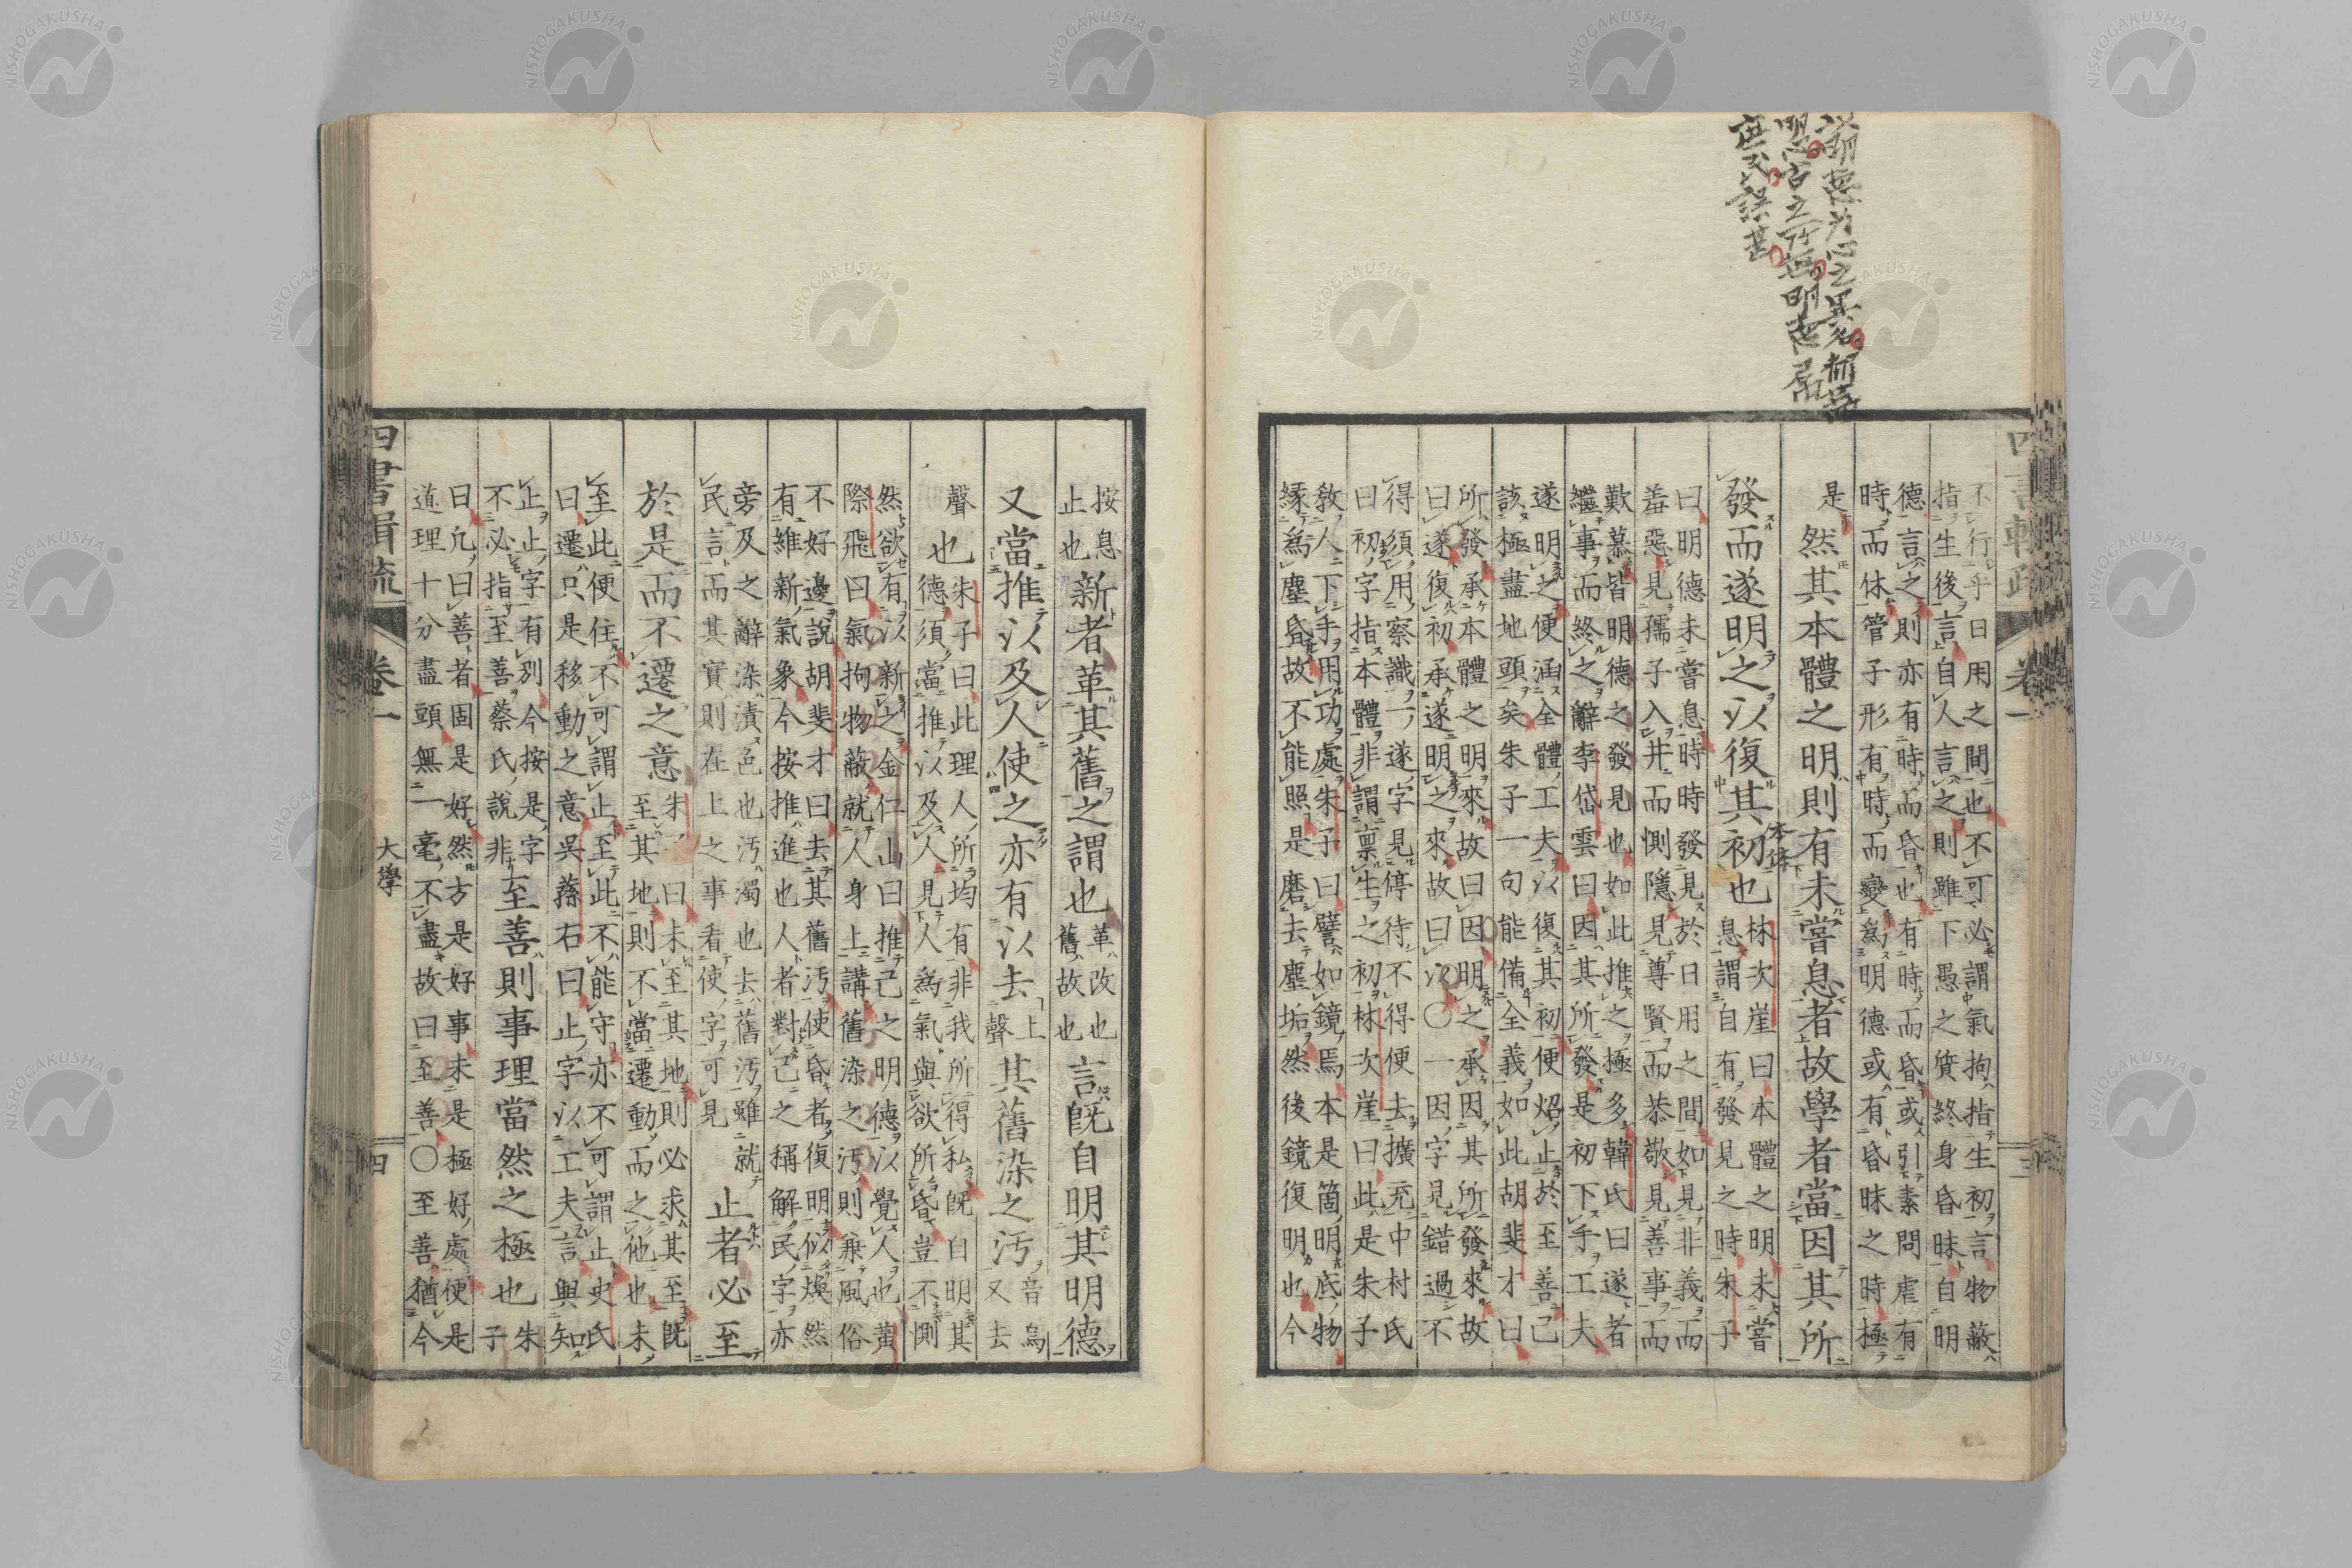 四書輯疏 卷一 三
不行乎日用之間也不可必謂氣拘指生初言物蔽
指生後言自人言之則雖下愚之質終身昏昧自明
德言之則亦有時而昏也有時而昏或引素問虐有
時而休管子形有時而變為明德或有昏昧之時極
是然其本體之明則有未嘗息者故學者當因其所
發而遂明之以復其初也
本体
林次崖曰本體之明未嘗
息謂自有發見之時朱子
曰明德未嘗息時時發見於日用之間如見非義而
羞惡見孺子入井而惻隱見尊賢而恭敬見善事而
歎慕皆明德之發見也如此推之極多韓氏曰遂者
繼事而終之辭李岱雲曰因其所發是初下手工夫
遂明之便涵全體工夫以復其初便炤止於至善己
該極盡地頭矣朱子一句能備全義如此胡斐才曰
所發承本體之明來故曰因明之承因其所發來故
曰遂復初承遂明之來故曰以〇一因字見錯過不
得須用察識一遂字見停待不得便去擴充中村氏
曰初字指本體非謂禀生之初林次崖曰此是朱子
敎人下手用功處朱子曰譬如鏡焉本是箇明底物
縁為塵昏故不能照是磨去塵垢然後鏡復明也今
按息
止也
新者革其舊之謂也
革改也
舊故也
言旣自明其明德
又當推以及人使之亦有以去
上
聲
其舊染之汚
音烏
又去
聲也
朱子曰此理人所均有非我所得私旣自明其
德須當推以及人見人為氣與欲所昏豈不惻
然欲有以新之金仁山曰推己之明德以覺人也黃
際飛曰氣拘物蔽就人身上講舊染之汚則兼風俗
不好邊說胡斐才曰去其舊汚使昏者復明似煥然
有維新氣象今按推進也人者對己之稱解民字亦
旁及之辭染漬色也汚濁也去舊汚雖就
民言而其實則在上之事看使字可見
止者必至
於是而不遷之意
朱曰未至其地則必求其至旣
至其地則不當遷動而之他也未
至此便住不可謂止至此不能守亦不可謂止史氏
曰遷只是移動之意吳蓀右曰止字以工夫言與知
止止字有別今按是字
不必指至善蔡氏說非
至善則事理當然之極也
朱
子
曰凢曰善者固是好然方是好事未是極好處便是
道理十分盡頭無一毫不盡故曰至善〇至善猶今
四書輯疏 卷一 大學 四